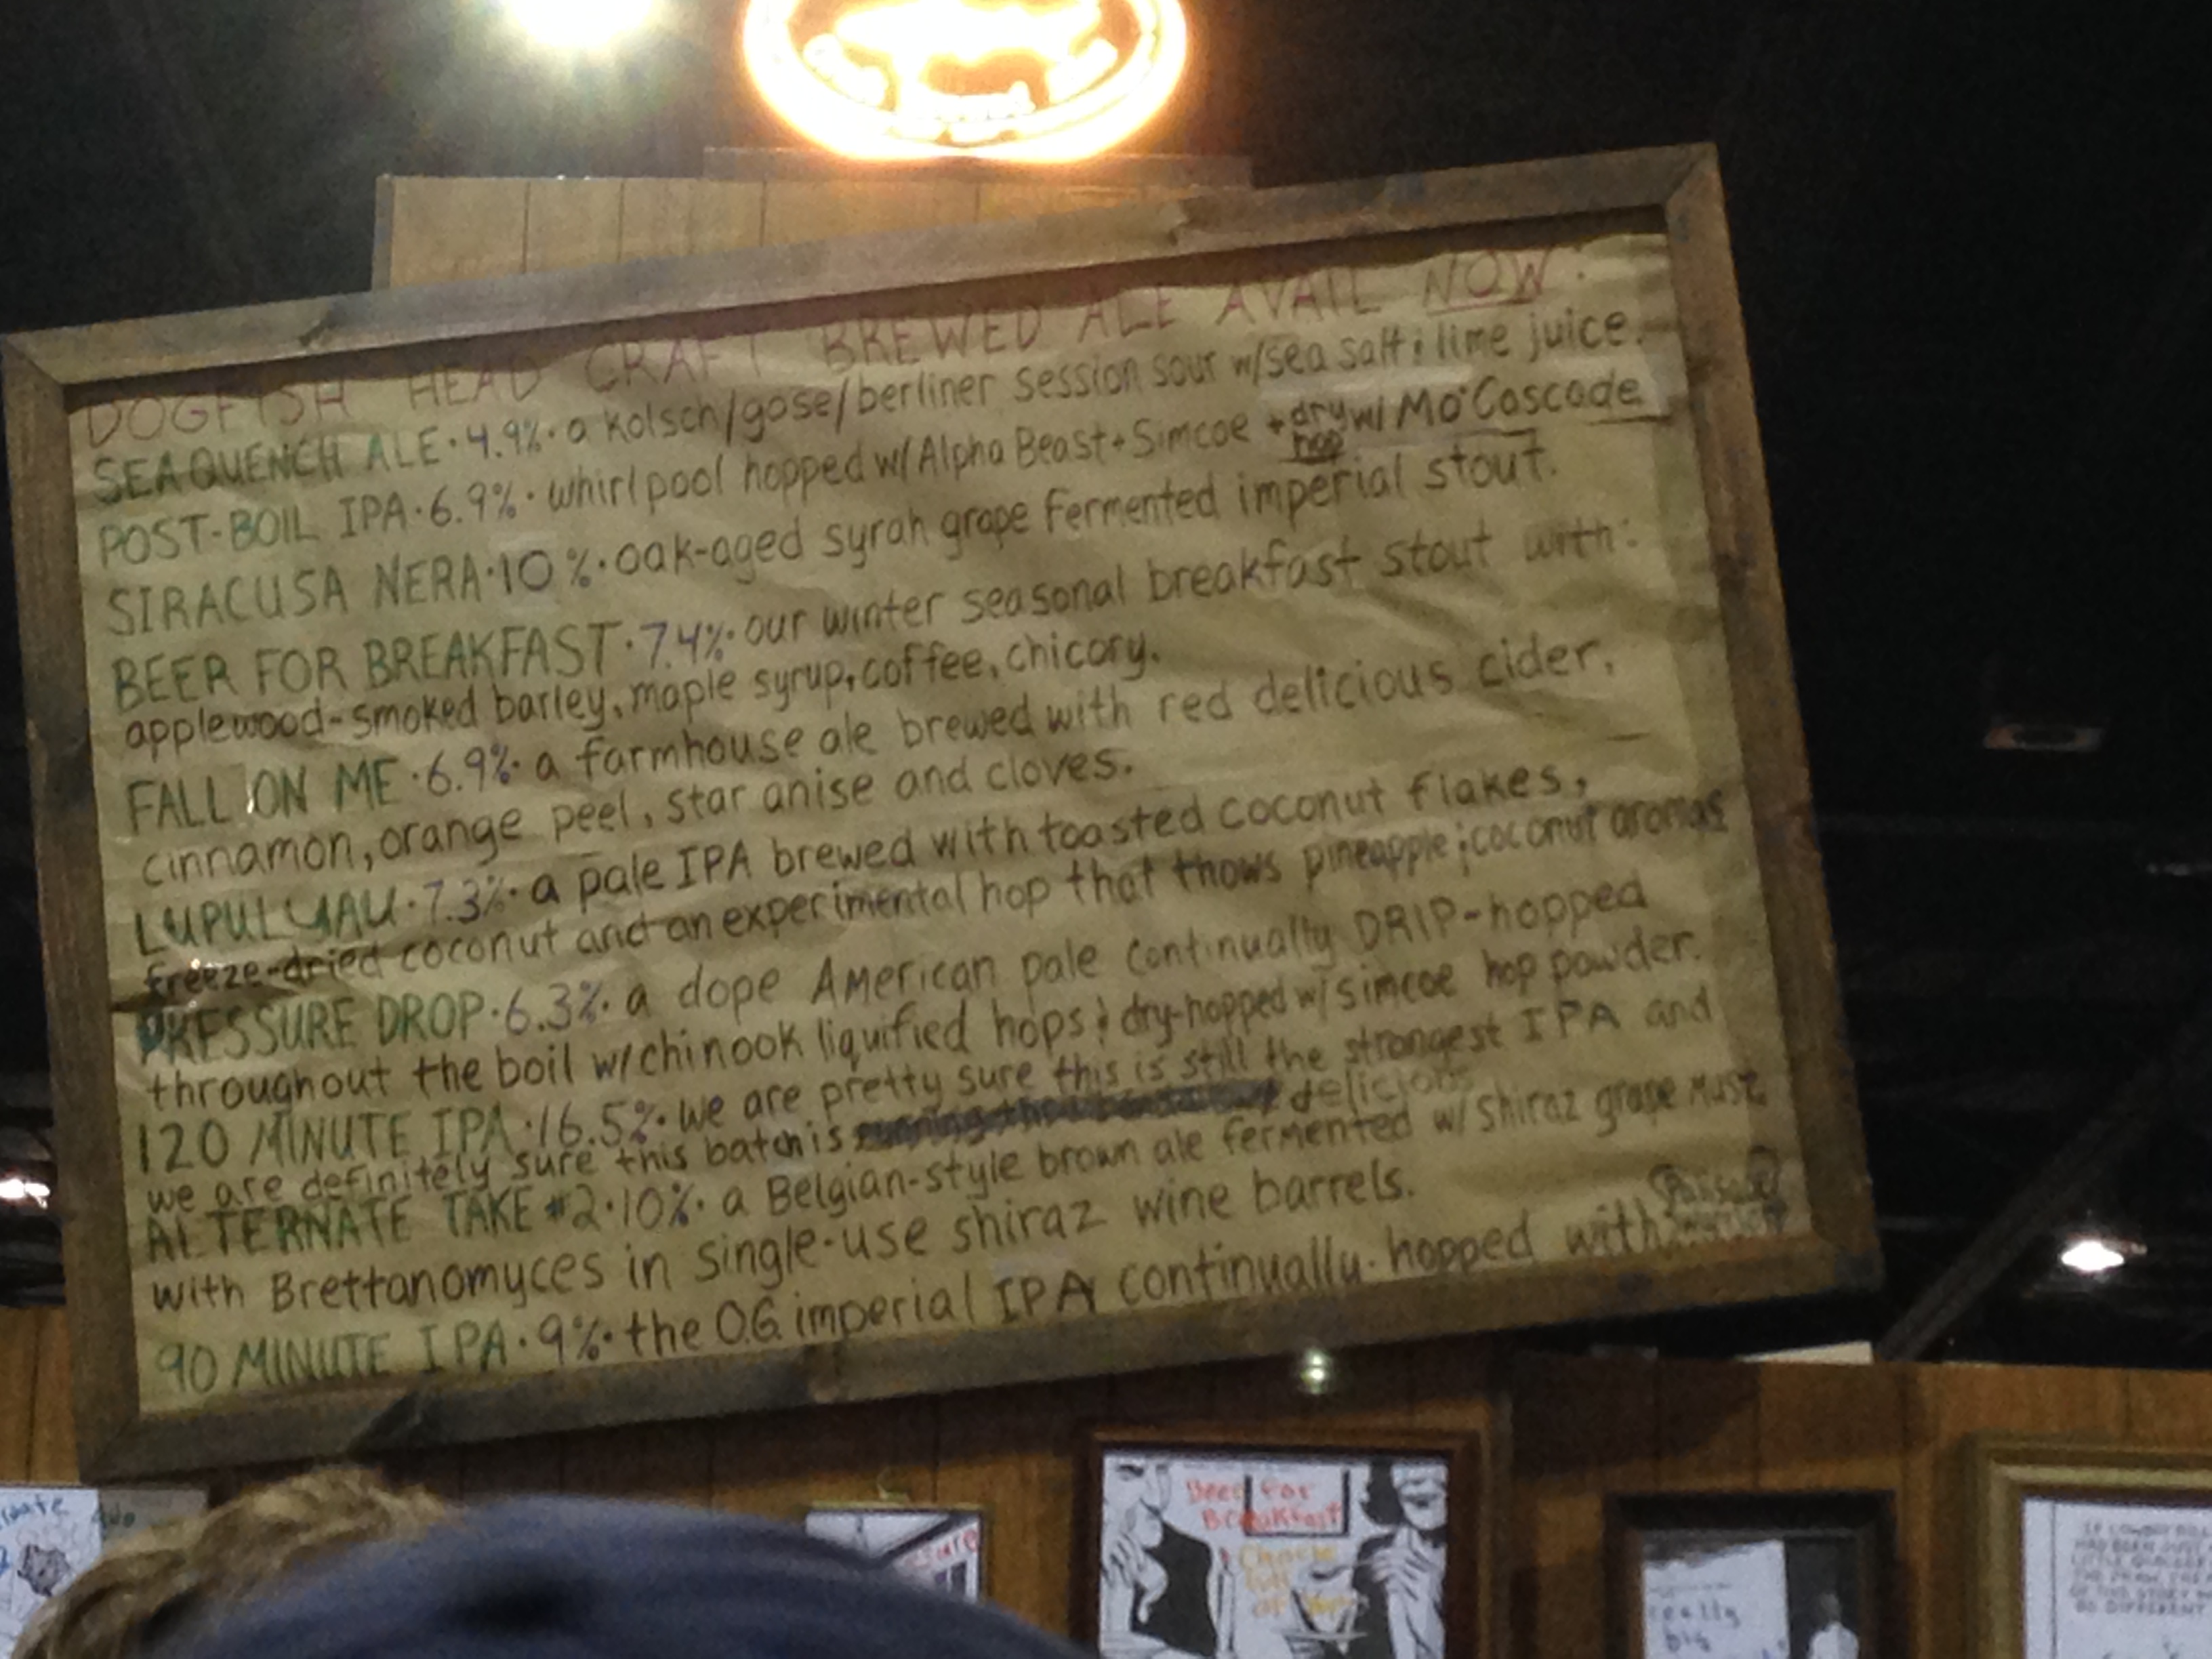 DOGFISH HEAD CRAFT BREWED ALE AVAIL NOW.
SEAQUENCH ALE · 4.9% · a kolsch/gose/berliner session sour w/sea salt & lime juice.
POST-BOIL IPA · 6.9% · whirlpool hopped w/Alpha Beast + Simcoe + dry hop w/ Mo' Cascade
SIRACUSA NERA · 10% · oak-aged syrah grape fermented imperial stout.
BEER FOR BREAKFAST · 7.4% · our winter seasonal breakfast stout with:
applewood-smoked barley, maple syrup, coffee, chicory.
FALL ON ME · 6.9% · a farmhouse ale brewed with red delicious cider,
cinnamon, orange peel, star anise and cloves.
LUPULUAU · 7.3% · a pale IPA brewed with toasted coconut flakes,
freeze-dried coconut and an experimental hop that thows pineapple & coconut aromas
PRESSURE DROP · 6.3% · a dope American pale continually DRIP-hopped
throughout the boil w/chinook liquified hops & dry-hopped w/simcoe hop powder.
120 MINUTE IPA · 16.5% · we are pretty sure this is still the strongest IPA and
we are definitely sure this batch is delicious
ALTERNATE TAKE #2 · 10% · a Belgian-style brown ale fermented w/ Shiraz grape must
with Brettanomyces in single-use shiraz wine barrels.
90 MINUTE IPA · 9% · the O.G. imperial IPA continually-hopped with
Beer For
Breakfast
really
big